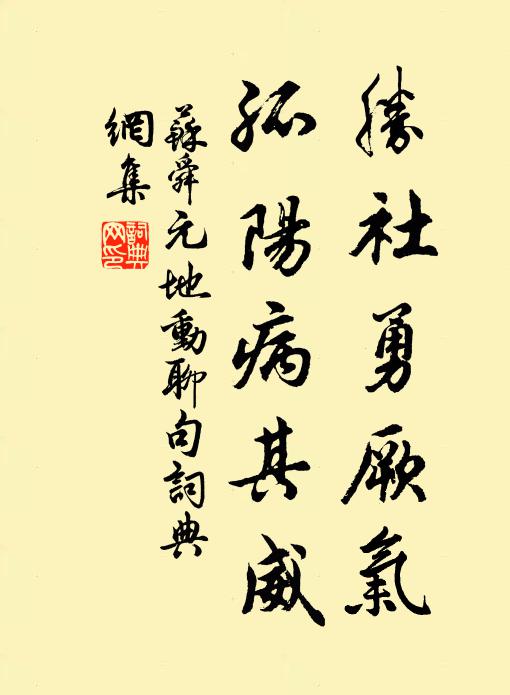 勝社勇厥氣
孤陽病其威
蘇舜元地動聊句詞典
網集
詞典網印